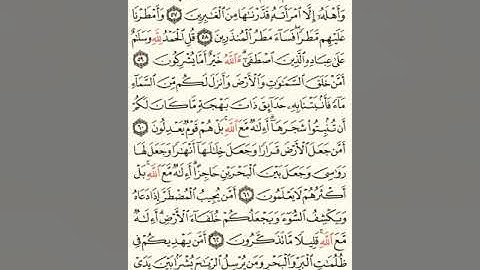 وَأَهْلَهُۥٓ إِلَّا ٱمْرَأَتَهُۥ قَدَّرْنَٰهَا مِنَ ٱلْغَٰبِرِينَ ٥٧ وَأَمْطَرْنَا
عَلَيْهِم مَّطَرًا ۖ فَسَآءَ مَطَرُ ٱلْمُنذَرِينَ ٥٨ قُلِ ٱلْحَمْدُ لِلَّهِ وَسَلَٰمٌ
عَلَىٰ عِبَادِهِ ٱلَّذِينَ ٱصْطَفَىٰٓ ۗ ءَآللَّهُ خَيْرٌ أَمَّا يُشْرِكُونَ ٥٩
أَمَّنْ خَلَقَ ٱلسَّمَٰوَٰتِ وَٱلْأَرْضَ وَأَنزَلَ لَكُم مِّنَ ٱلسَّمَآءِ
مَآءً فَأَنۢبَتْنَا بِهِۦ حَدَآئِقَ ذَاتَ بَهْجَةٍ مَّا كَانَ لَكُمْ
أَن تُنۢبِتُوا۟ شَجَرَهَآ ۗ أَءِلَٰهٌ مَّعَ ٱللَّهِ ۚ بَلْ هُمْ قَوْمٌ يَعْدِلُونَ ٦٠
أَمَّن جَعَلَ ٱلْأَرْضَ قَرَارًا وَجَعَلَ خِلَٰلَهَآ أَنْهَٰرًا وَجَعَلَ لَهَا
رَوَٰسِىَ وَجَعَلَ بَيْنَ ٱلْبَحْرَيْنِ حَاجِزًا ۗ أَءِلَٰهٌ مَّعَ ٱللَّهِ ۚ بَلْ
أَكْثَرُهُمْ لَا يَعْلَمُونَ ٦١ أَمَّن يُجِيبُ ٱلْمُضْطَرَّ إِذَا دَعَاهُ
وَيَكْشِفُ ٱلسُّوٓءَ وَيَجْعَلُكُمْ خُلَفَآءَ ٱلْأَرْضِ ۗ أَءِلَٰهٌ
مَّعَ ٱللَّهِ ۚ قَلِيلًا مَّا تَذَكَّرُونَ ٦٢ أَمَّن يَهْدِيكُمْ فِى
ظُلُمَٰتِ ٱلْبَرِّ وَٱلْبَحْرِ وَمَن يُرْسِلُ ٱلرِّيَٰحَ بُشْرًۢا بَيْنَ يَدَىْ